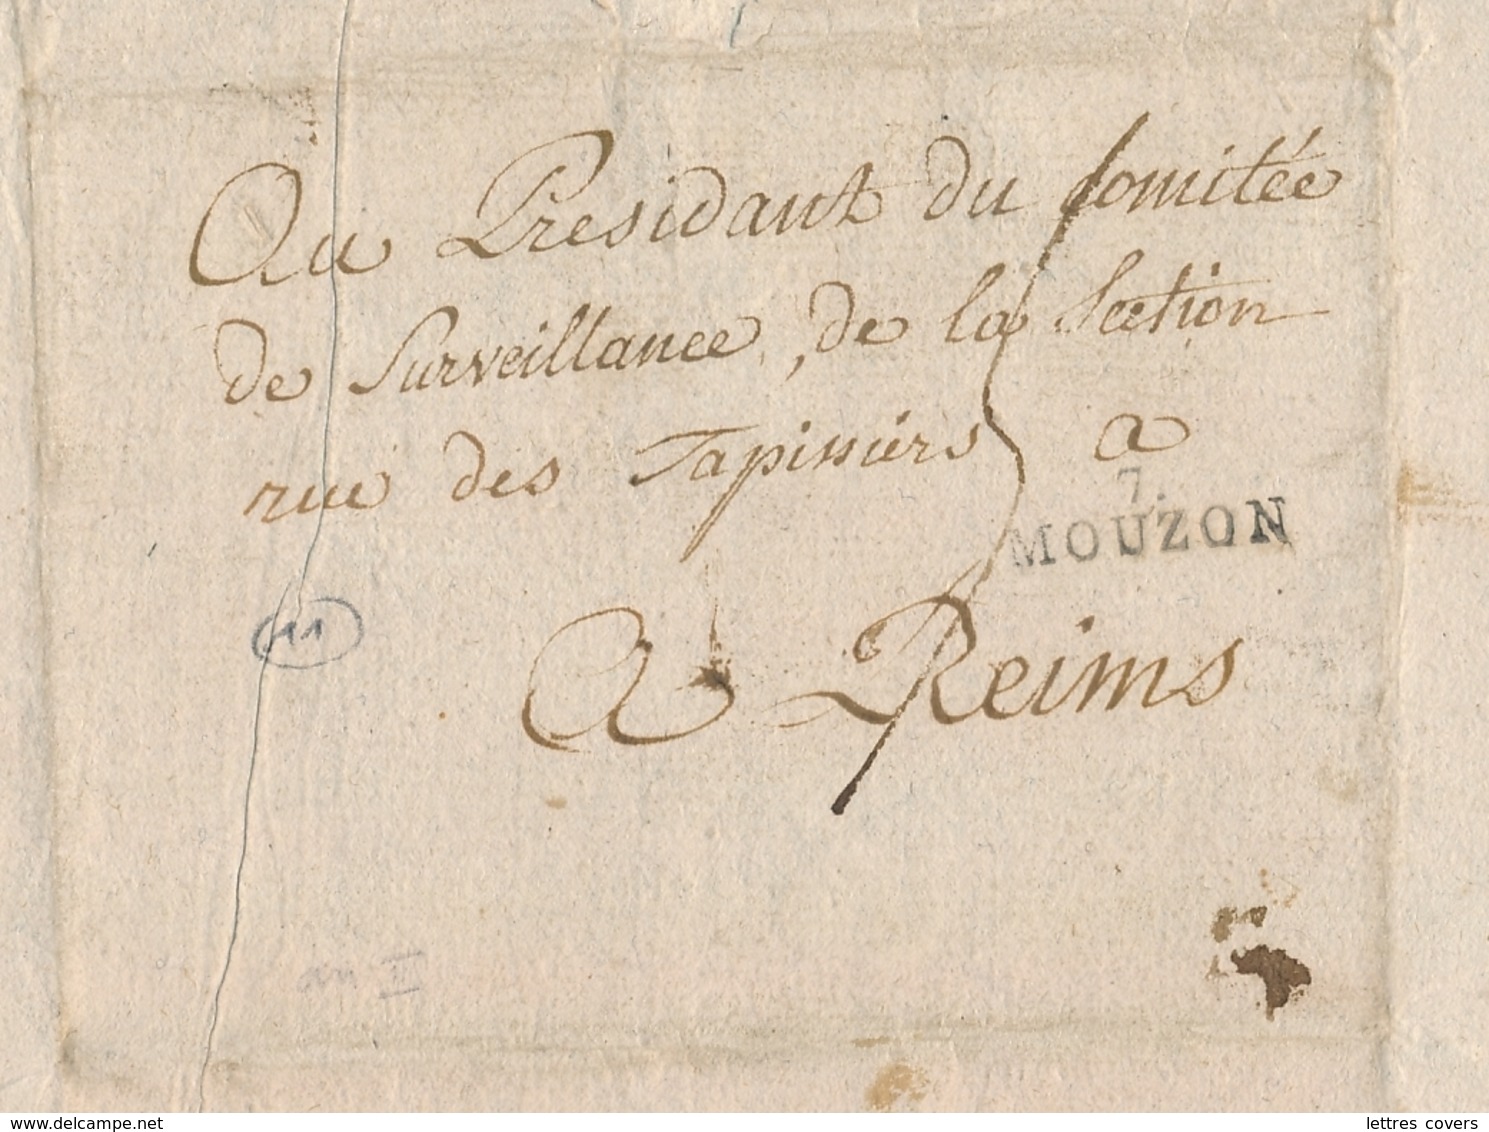 Au Presidant du Comitée
de Surveillance, de la Section
rue des Tapissiers a
7.
MOUZON
A Reims
11
an III
© delcampe.net
lettres covers